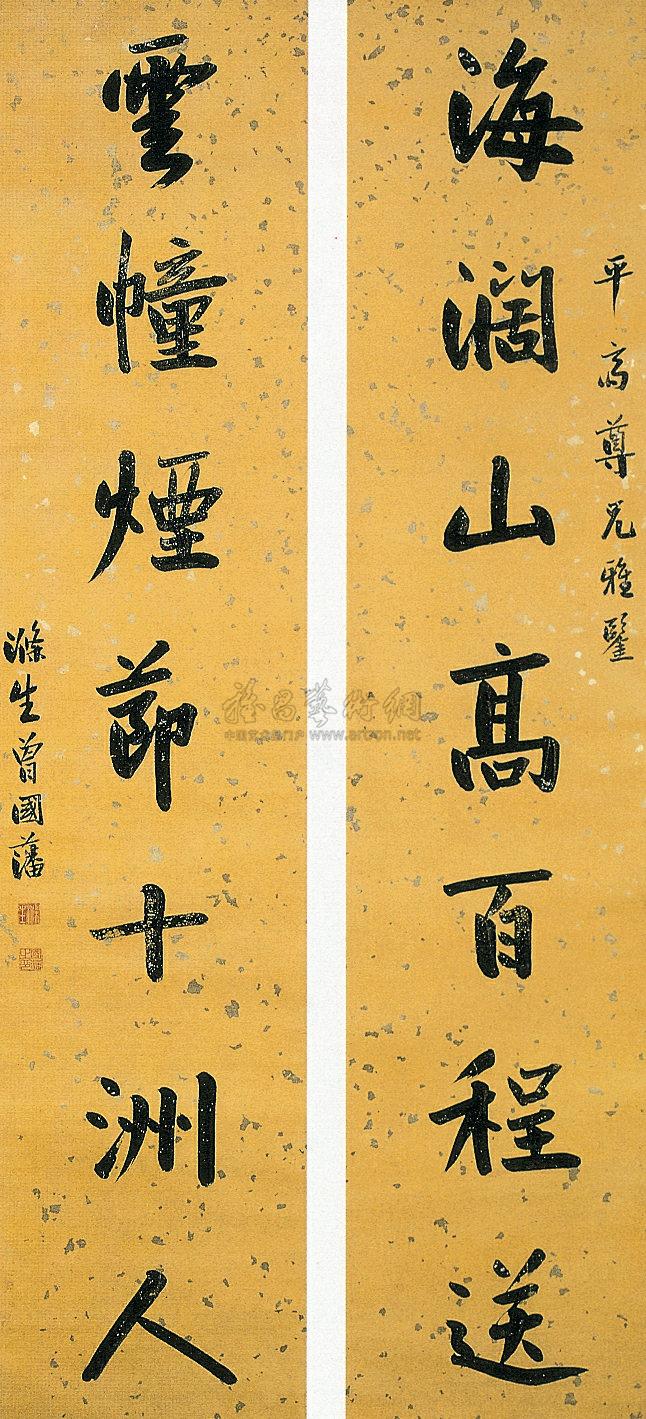 平高尊兄雅鑒
海濶山髙百程送
雲幢煙節十洲人
滌生曾國藩
雅昌藝術網
中国艺术品门户 www.artron.net